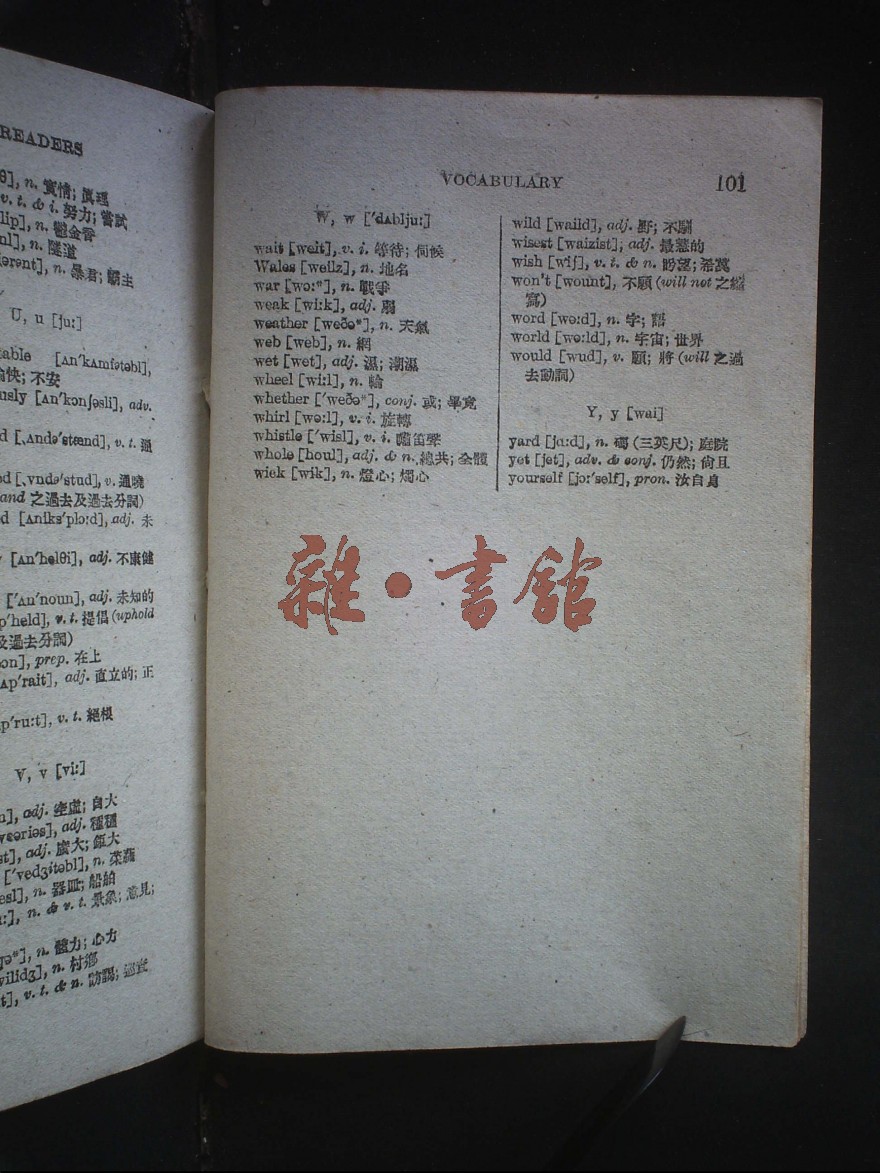 READERS
n. 實情; 眞理
v. t. & i. 努力; 嘗試
n. 鬱金香
n. 隧道
n. 暴君; 霸主
U, u [ju:]
[ʌn'kʌmfətəbl],
不安
[ʌn'kɔnʃəsli], adv.
[ˌʌndə'stænd], v. t. 通
v. 通曉
之過去及過去分詞)
[ʌniks'plɔ:d], adj. 未
[ʌn'helθi], adj. 不康健
['ʌn'noun], adj. 未知的
v. t. 提倡 (uphold
及過去分詞)
prep. 在上
adj. 直立的; 正
v. t. 絕根
V, v [vi:]
adj. 空虛; 自大
adj. 種種
adj. 廣大; 鉅大
['vedʒitəbl], n. 菜蔬
n. 器皿; 船舶
n. & v. t. 景象; 意見;
n. 體力; 心力
n. 村鄉
v. t. & n. 訪謁;
VOCABULARY 101
W, w ['dʌblju:]
wait [weit], v. i. 等待; 伺候
Wales [weilz], n. 地名
war [wɔ:*], n. 戰爭
weak [wi:k], adj. 弱
weather [weðə*], n. 天氣
web [web], n. 網
wet [wet], adj. 濕; 潮濕
wheel [wi:l], n. 輪
whether ['weðə*], conj. 或; 畢竟
whirl [wə:l], v. i. 旋轉
whistle ['wisl], v. i. 嘯笛聲
whole [houl], adj. & n. 總共; 全體
wick [wik], n. 燈心; 燭心
wild [waild], adj. 野; 不馴
wisest [waizist]; adj. 最慧的
wish [wiʃ], v. t. & n. 盼望; 希冀
won't [wount], 不願 (will not 之縮
寫)
word [wə:d], n. 字; 語
world [wə:ld], n. 宇宙; 世界
would [wud], v. 願; 將 (will 之過
去動詞)
Y, y [wai]
yard [jɑ:d], n. 碼 (三英尺); 庭院
yet [jet], adv. & conj. 仍然; 尙且
yourself [jɔ:'self], pron. 汝自身
雜·書館